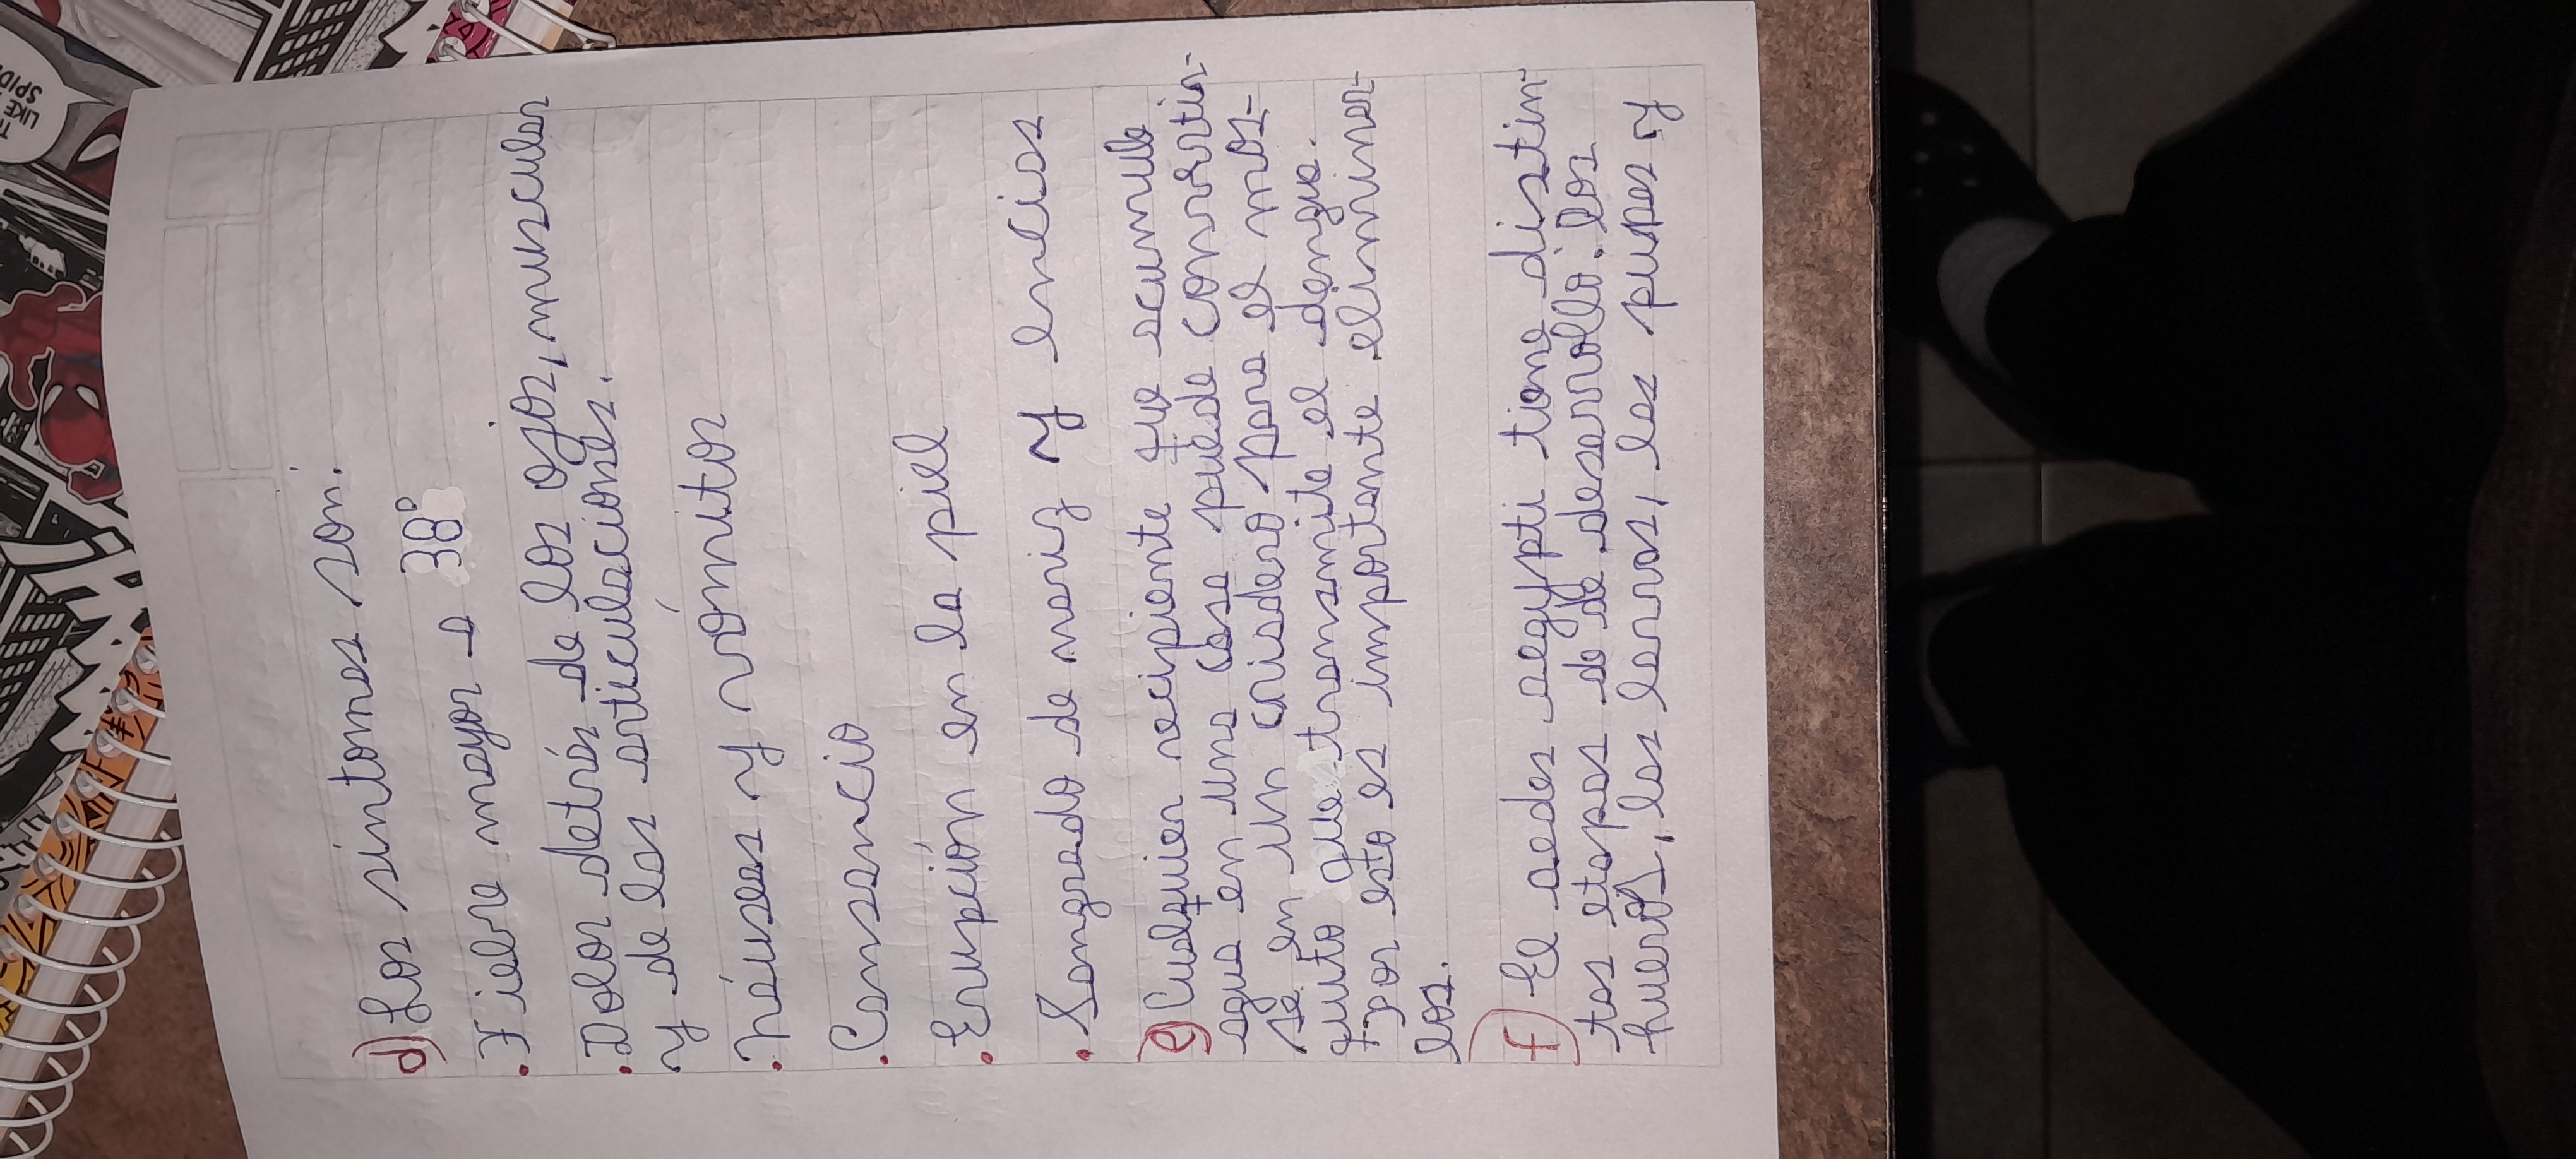 d) Los sintomas son:
• Fiebre mayor a 38°
• Dolor detrás de los ojos, muscular
y de las articulaciones.
• Náuseas y vómitos
• Cansancio
• Erupción en la piel
• Sangrado de nariz y encias
e) Cualquier recipiente que acumule
agua en una casa puede convertir-
se en un criadero para el mos-
quito que transmite el dengue.
Por esto es importante eliminar-
los.
f) El aedes aegypti tiene distin-
tas etapas de de desarrollo: los
huevos, las larvas, las pupas y
LIKE
SPID